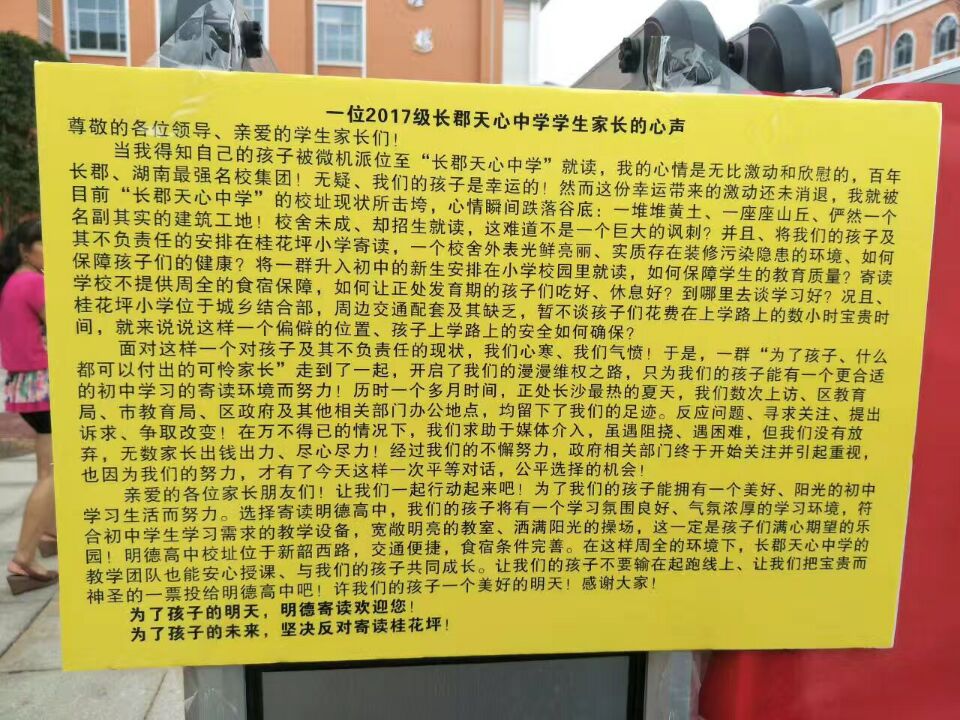 一位2017级长郡天心中学学生家长的心声
尊敬的各位领导、亲爱的学生家长们！
当我得知自己的孩子被微机派位至“长郡天心中学”就读，我的心情是无比激动和欣慰的，百年
长郡、湖南最强名校集团！无疑、我们的孩子是幸运的！然而这份幸运带来的激动还未消退，我就被
目前“长郡天心中学”的校址现状所击垮，心情瞬间跌落谷底：一堆堆黄土、一座座山丘、俨然一个
名副其实的建筑工地！校舍未成、却招生就读，这难道不是一个巨大的讽刺？并且、将我们的孩子及
其不负责任的安排在桂花坪小学寄读，一个校舍外表光鲜亮丽、实质存在装修污染隐患的环境、如何
保障孩子们的健康？将一群升入初中的新生安排在小学校园里就读，如何保障学生的教育质量？寄读
学校不提供周全的食宿保障，如何让正处发育期的孩子们吃好、休息好？到哪里去谈学习好？况且、
桂花坪小学位于城乡结合部，周边交通配套及其缺乏，暂不谈孩子们花费在上学路上的数小时宝贵时
间，就来说说这样一个偏僻的位置、孩子上学路上的安全如何确保？
面对这样一个对孩子及其不负责任的现状，我们心寒、我们气愤！于是，一群“为了孩子、什么
都可以付出的可怜家长”走到了一起，开启了我们的漫漫维权之路，只为我们的孩子能有一个更合适
的初中学习的寄读环境而努力！历时一个多月时间，正处长沙最热的夏天，我们数次上访、区教育
局、市教育局、区政府及其他相关部门办公地点，均留下了我们的足迹。反应问题、寻求关注、提出
诉求、争取改变！在万不得已的情况下，我们求助于媒体介入，虽遇阻挠、遇困难，但我们没有放
弃，无数家长出钱出力、尽心尽力！经过我们的不懈努力，政府相关部门终于开始关注并引起重视，
也因为我们的努力，才有了今天这样一次平等对话，公平选择的机会！
亲爱的各位家长朋友们！让我们一起行动起来吧！为了我们的孩子能拥有一个美好、阳光的初中
学习生活而努力。选择寄读明德高中，我们的孩子将有一个学习氛围良好、气氛浓厚的学习环境，符
合初中学生学习需求的教学设备，宽敞明亮的教室、洒满阳光的操场，这一定是孩子们满心期望的乐
园！明德高中校址位于新韶西路，交通便捷，食宿条件完善。在这样周全的环境下，长郡天心中学的
教学团队也能安心授课、与我们的孩子共同成长。让我们的孩子不要输在起跑线上、让我们把宝贵而
神圣的一票投给明德高中吧！许我们的孩子一个美好的明天！感谢大家！
为了孩子的明天，明德寄读欢迎您！
为了孩子的未来，坚决反对寄读桂花坪！